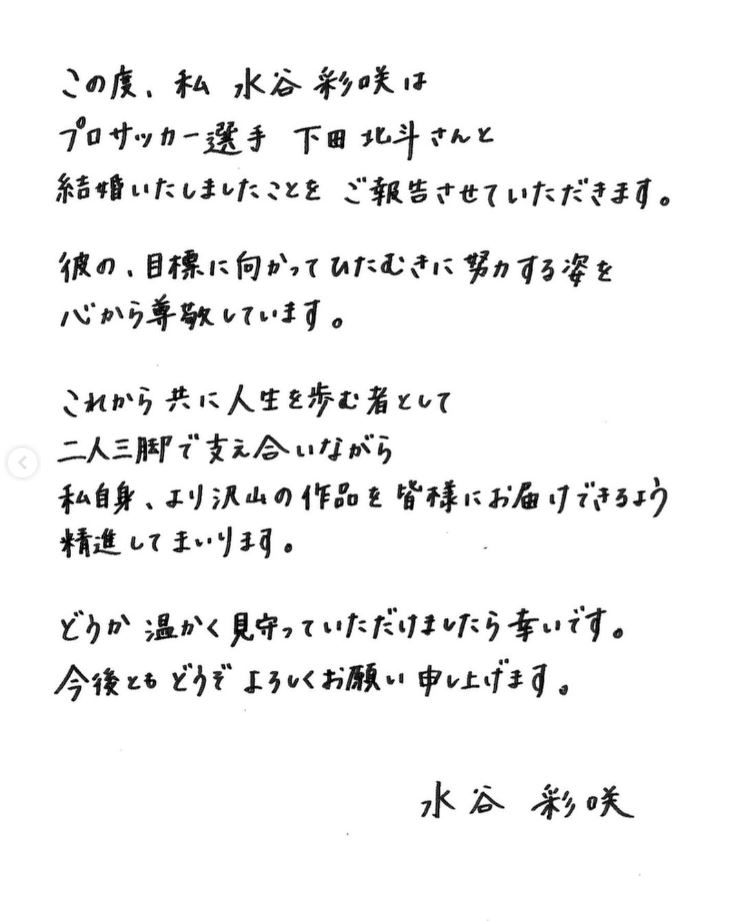 この度、私 水谷 彩咲は
プロサッカー選手 下田 北斗さんと
結婚いたしましたことを ご報告させていただきます。
彼の、目標に向かってひたむきに努力する姿を
心から尊敬しています。
これから共に人生を歩む者として
二人三脚で支え合いながら
私自身、より沢山の作品を皆様にお届けできるよう
精進してまいります。
どうか 温かく見守っていただけましたら幸いです。
今後とも どうぞ よろしくお願い 申し上げます。
水谷 彩咲